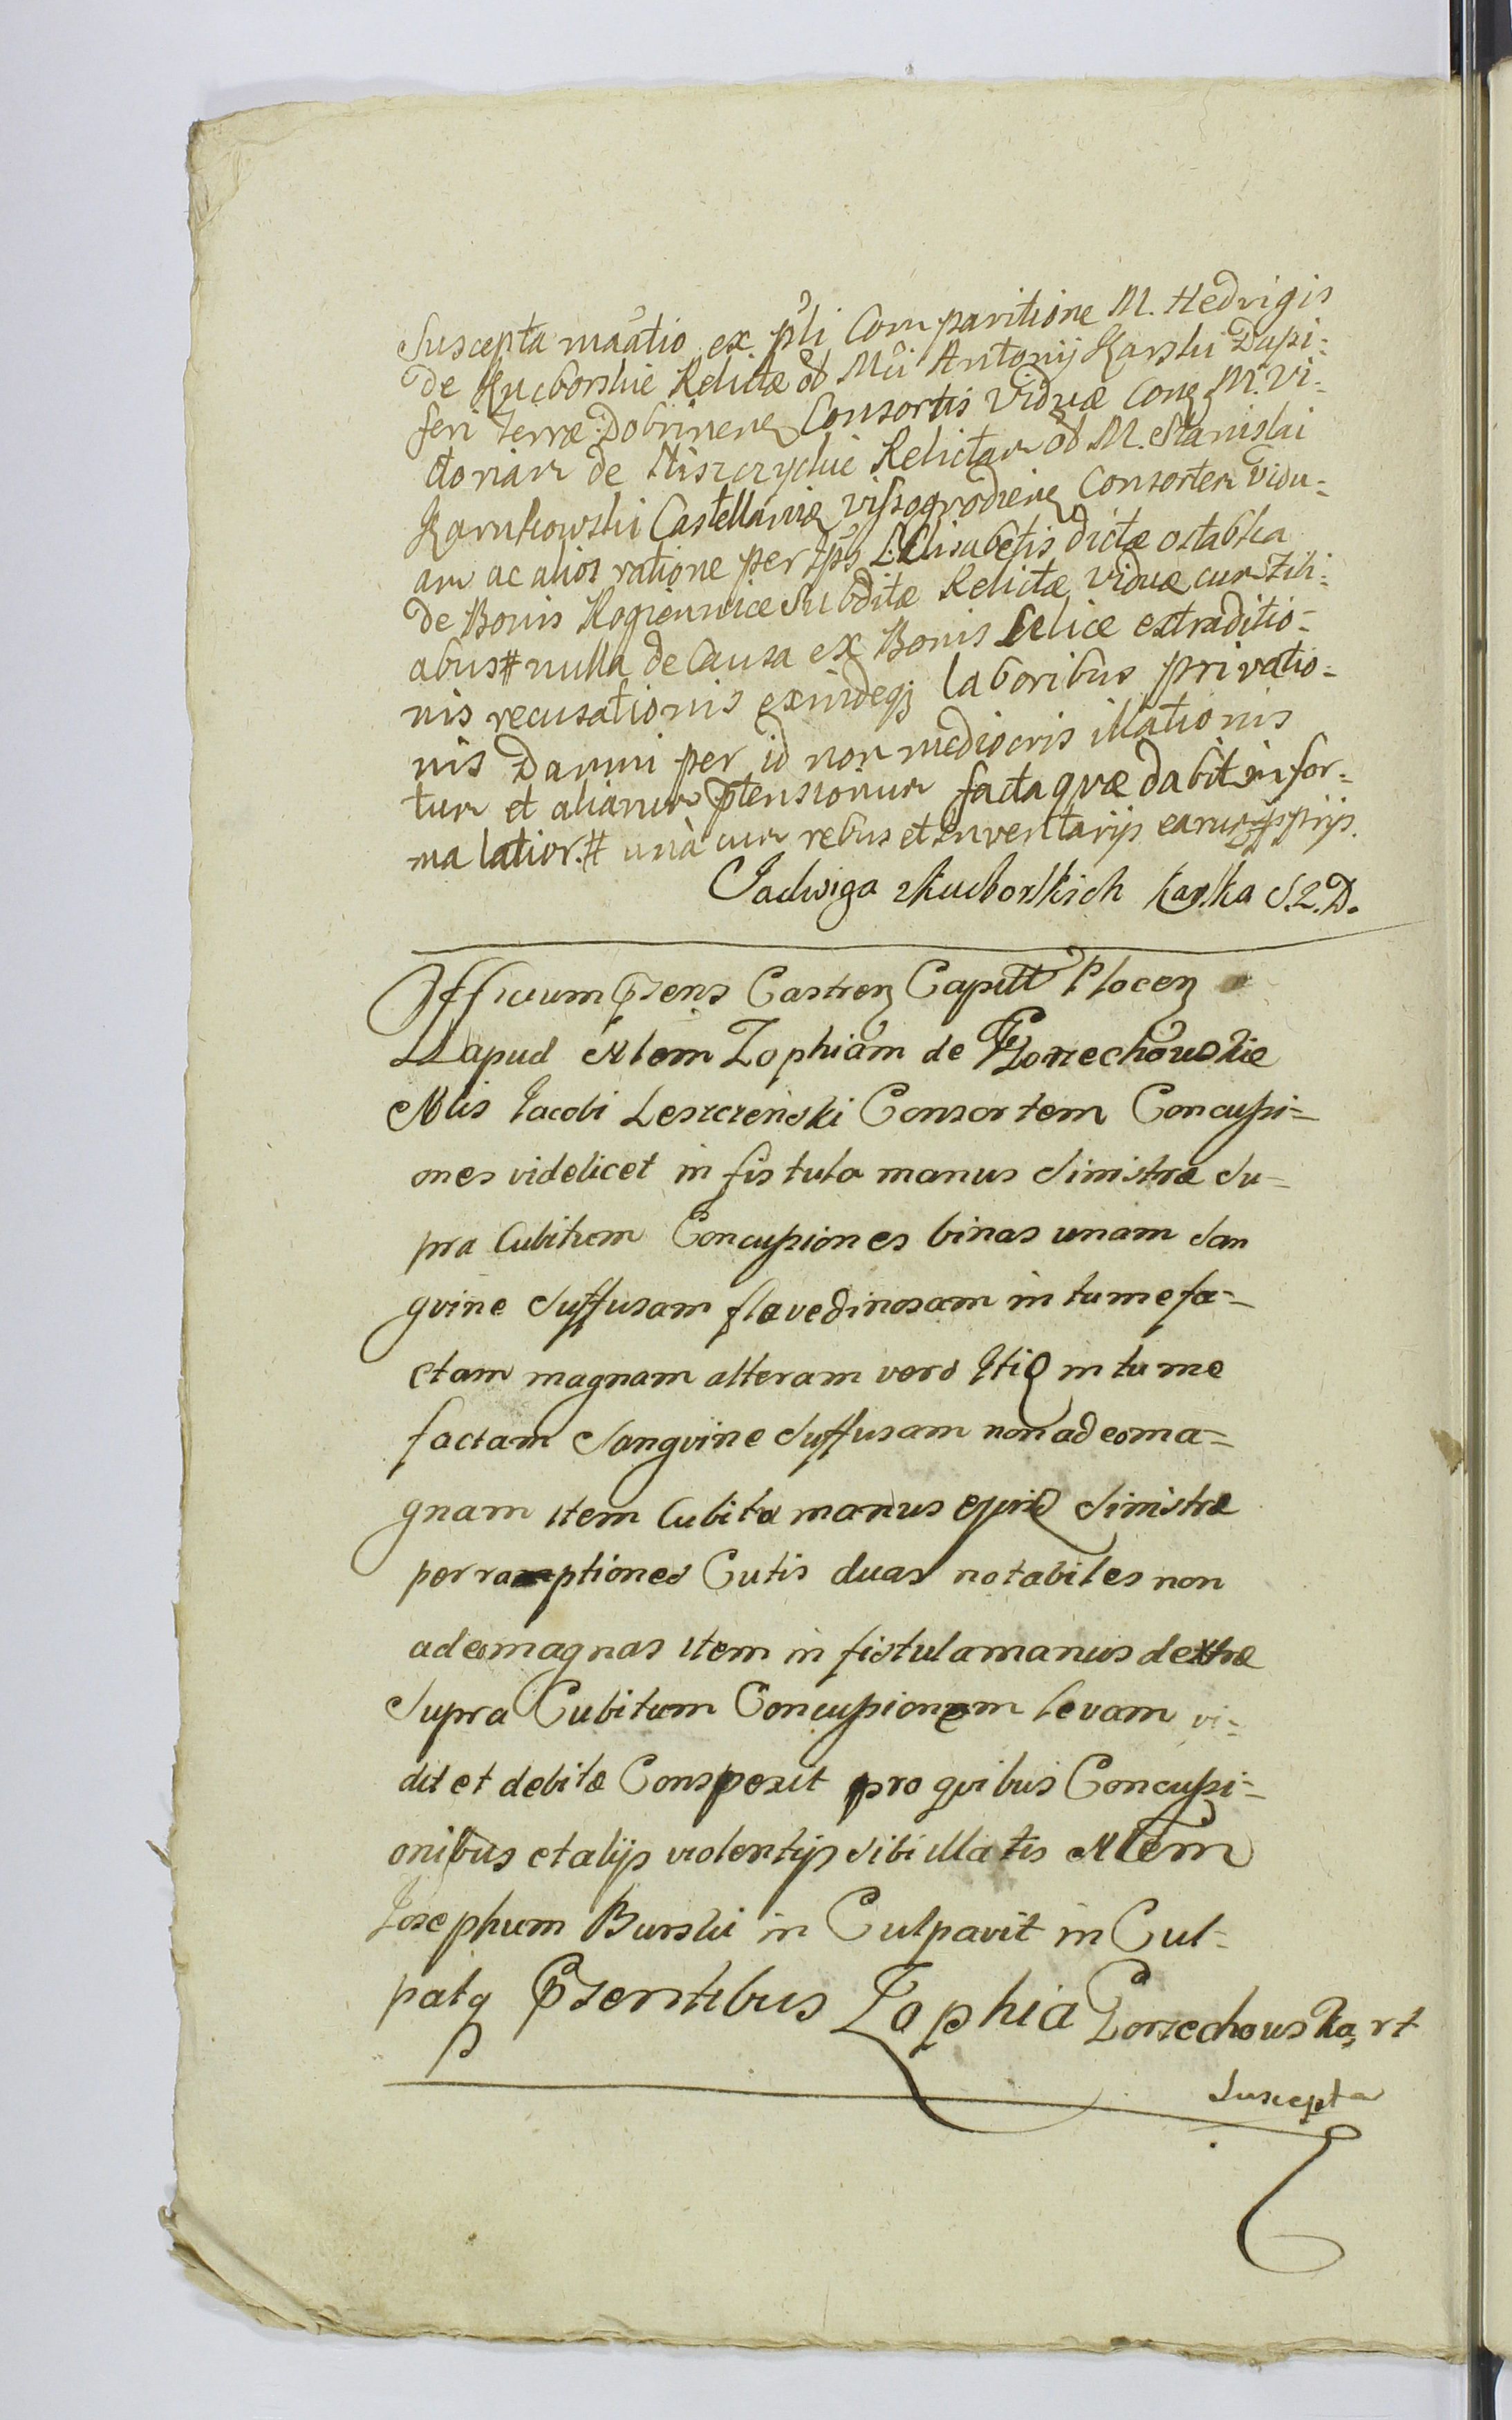 Suscepta maãtio ex pĺi Comparitione M. Hedvigis
de Kucborskie Relictæ ol Mci Antonij Karski Dapi=
feri terræ Dobrinenz Consortis Viduæ conz M. Vi=
ctoriam de Relictam ol M. Stanislai
Karnkowski Castellaniæ vissogrodienz Consortem Vidu=
am ac alios ratione per Elisabetis dictæ
de Bonis Subditæ Relictæ Viduæ cum Fili=
abus # nulla de Causa ex Bonis extraditio=
nis recusationis exindeqz laboribus privatio=
nis Damni per id non mediocris illationis
tum et aliarum ptensionum facta qvæ dabitur in for=
ma latiori. # unà cum rebus et inventarijs earum pprijs.
Jadwiga zKucborskich Karska S.Z.D.
Officium Psens Castrenz Capitt Plocenz
apud Nlem Zophiam de Gorzechowskie
Nlis Jacobi Leszczeński Consortem Concussi=
ones videlicet in fistula manus Sinistræ Su=
pra Cubitum Concussiones binas unam San
gvine Suffusam flavedinosam intumefa=
ctam magnam alteram vero Itiq intume
factam Sangvine Suffusam non adeo ma=
gnam item Cubito manus ejusd Sinistræ
perraptiones Cutis duas notabiles non
adeo magnas item in fistula manus dextræ
Supra Cubitum Concussionem levam vi=
dit et debite Conspexit pro qvibus Concussi=
onibus et alijs violentijs sibi illatis Nlem
Josephum Burski in Culpavit in Cul=
patq Psentibus Zophia Gorzechowska rt
Suscepta